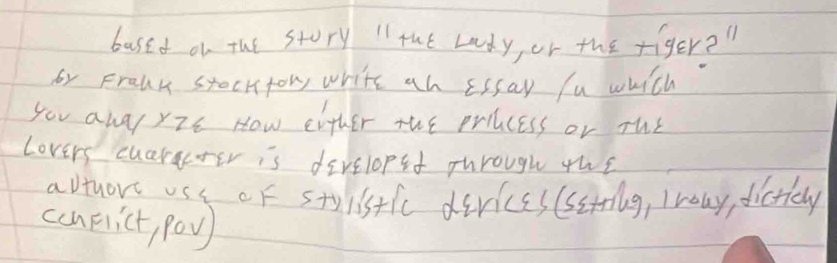 based on the story "the Lady, or the tiger?"
by Frank Stockton, write an essay in which
you analyze How either the princess or the
Lovers character is developed through the
authors use of stylistic devices (setting, Irony, diction
conflict, pov)